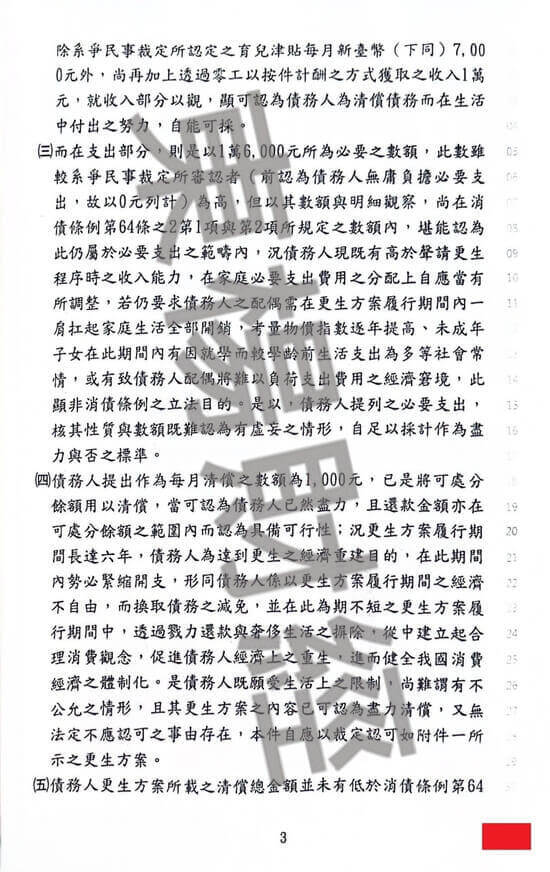 除系爭民事裁定所認定之育兒津貼每月新臺幣（下同）7,00
0元外，尚再加上透過零工以按件計酬之方式獲取之收入1萬
元，就收入部分以觀，顯可認為債務人為清償債務而在生活
中付出之努力，自能可採。
㈢而在支出部分，則是以1萬6,000元所為必要之數額，此數雖
較系爭民事裁定所審認者（前認為債務人無庸負擔必要支
出，故以0元列計）為高，但以其數額與明細觀察，尚在消
債條例第64條之2第1項與第2項所規定之數額內，堪能認為
此仍屬於必要支出之範疇內，況債務人現既有高於聲請更生
程序時之收入能力，在家庭必要支出費用之分配上自應當有
所調整，若仍要求債務人之配偶需在更生方案履行期間內一
肩扛起家庭生活全部開銷，考量物價指數逐年提高、未成年
子女在此期間內有因就學而較學齡前生活支出為多等社會常
情，或有致債務人配偶將難以負荷支出費用之經濟窘境，此
顯非消債條例之立法目的。是以，債務人提列之必要支出，
核其性質與數額既難認為有虛妄之情形，自足以採計作為盡
力與否之標準。
㈣債務人提出作為每月清償之數額為1,000元，已是將可處分
餘額用以清償，當可認為債務人已然盡力，且還款金額亦在
可處分餘額之範圍內而認為具備可行性；況更生方案履行期
間長達六年，債務人為達到更生之經濟重建目的，在此期間
內勢必緊縮開支，形同債務人係以更生方案履行期間之經濟
不自由，而換取債務之減免，並在此為期不短之更生方案履
行期間中，透過戮力還款與奢侈生活之摒除，從中建立起合
理消費觀念，促進債務人經濟上之重生，進而健全我國消費
經濟之體制化。是債務人既願受生活上之限制，尚難謂有不
公允之情形，且其更生方案之內容已可認為盡力清償，又無
法定不應認可之事由存在，本件自應以裁定認可如附件一所
示之更生方案。
㈤債務人更生方案所載之清償總金額並未有低於消債條例第64
3